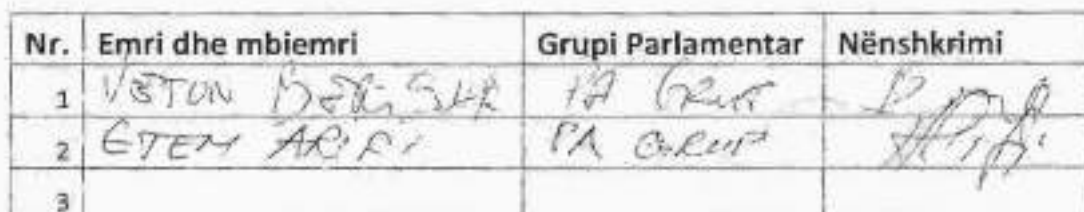 Nr. Emri dhe mbiemri Grupi Parlamentar Nënshkrimi
1 VETON BERISHA PA GRUP
2 ETEM ARIFI PA GRUP
3